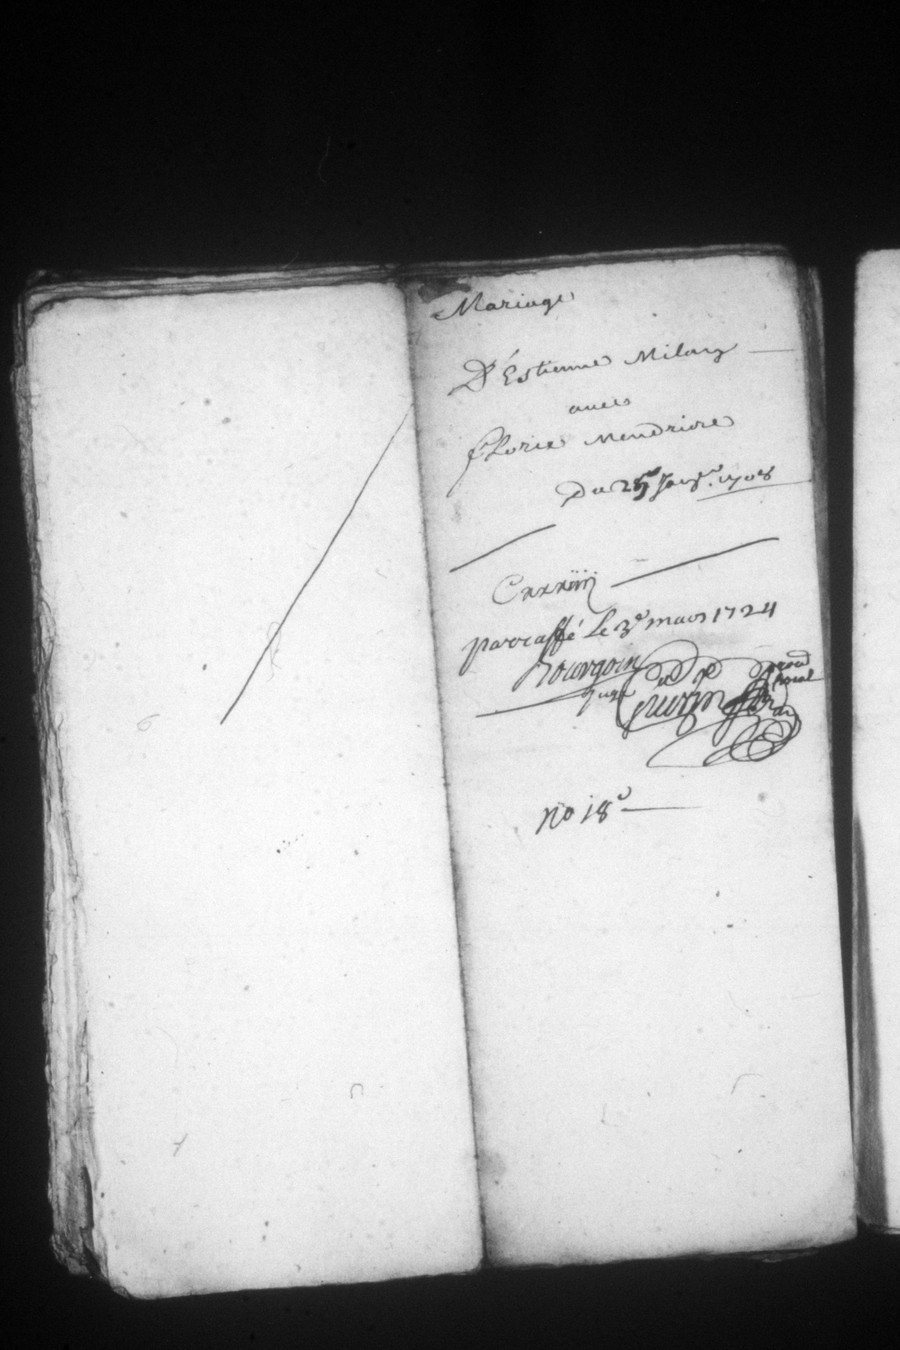 Mariage
D'Estienne Milany
avec
florie Mendriere
Du 25e Janv.er 1708
Cxxxiiij
parraffé le 3e mars 1724
Bourgoin
juge
Guerin
No 18e